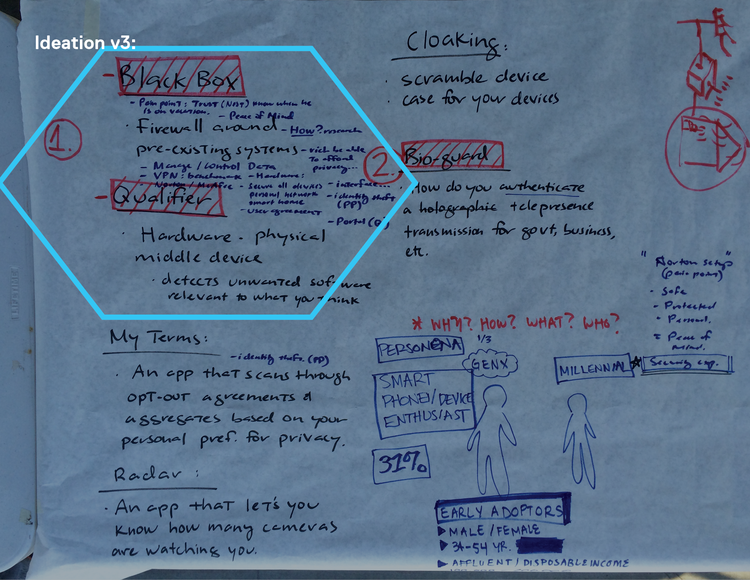 Ideation v3:
1.
- Black Box
- Pain point: Trust (Not) know when he
is on vacation. - Peace of Mind
· Firewall around - How? research
pre-existing systems - rich be able
To afford
privacy...
- Manage / Control Data
- VPN: benchmark
- Hardware:
- Secure all devices
personal network
smart home
- User agreement
- interface...
- identity theft
(PP)
- Portal
- Qualifier
· Hardware - physical
middle device
· detects unwanted software
relevant to what you think
My Terms:
- identity theft. (PP)
· An app that scans through
opt-out agreements &
aggregates based on your
personal pref. for privacy.
Radar:
· An app that let's you
know how many cameras
are watching you.
Cloaking:
· scramble device
· case for your devices
2.
Bio-guard
· How do you authenticate
a holographic telepresence
transmission for govt, business,
etc.
"Norton setup"
(pain point)
- Safe
- Protected
- Personal
= Peace of
mind.
* WHY? HOW? WHAT? WHO?
PERSONENA
1/3
GENX
SMART
PHONE/DEVICE
ENTHUSIAST
31%
MILLENNIAL
* Security exp.
EARLY ADOPTORS
▶ MALE / FEMALE
▶ 34-54 YR.
▶ AFFLUENT / DISPOSABLE INCOME